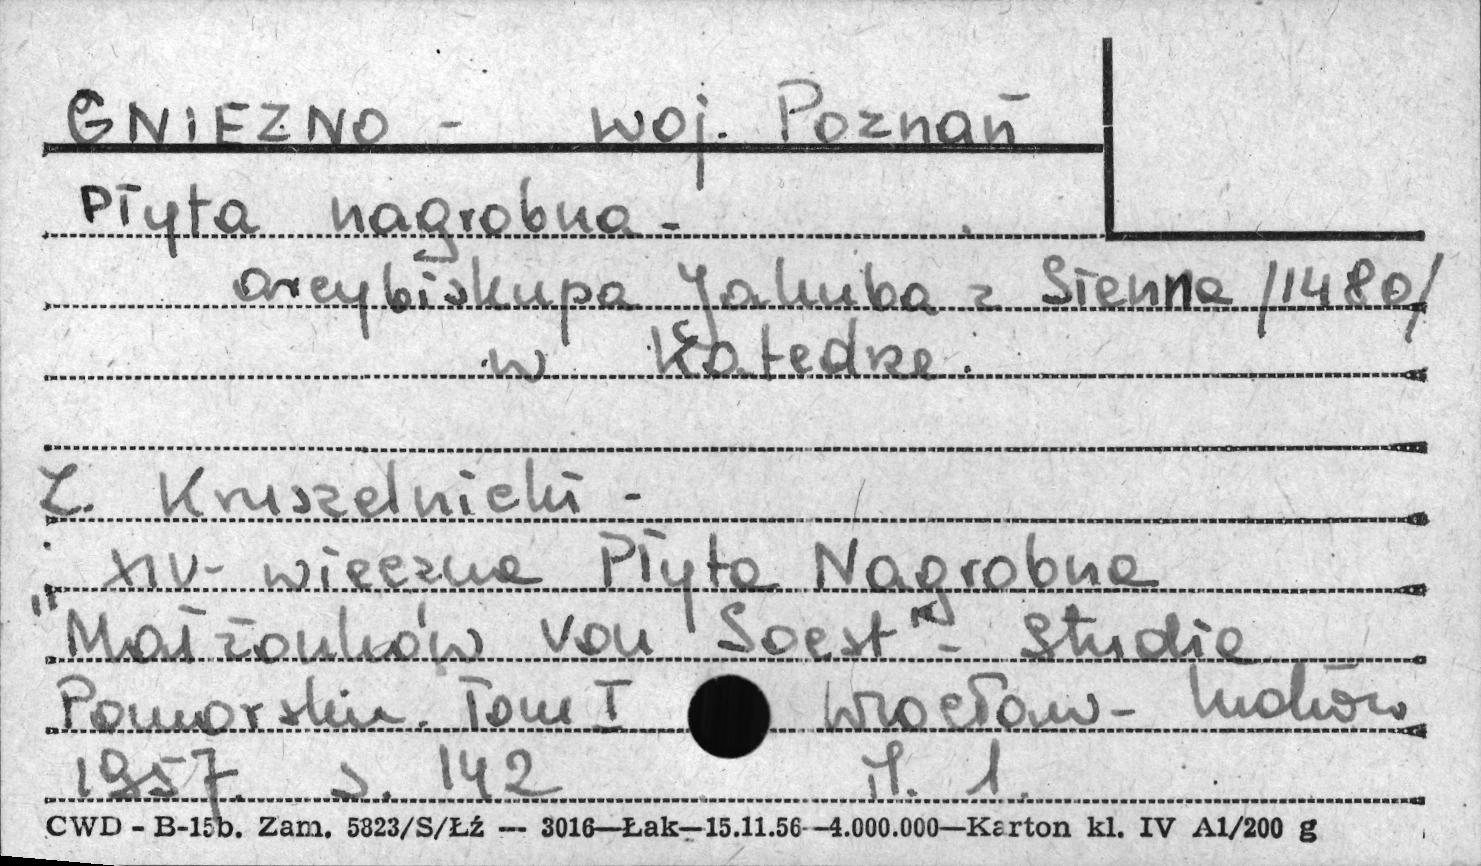 GNIEZNO - woj. Poznań
Płyta nagrobna -
arcybiskupa Jakuba z Sienna /1480/
w Katedrze.
Z. Kruszelnicki -
XIV- wieczna Płyta Nagrobna
"Małżonków von Soest" - Studia
Pomorskie. Tom I Wrocław - Kraków
1957. s. 142 il. 1.
CWD - B-15b. Zam. 5823/S/Łź — 3016—Łak—15.11.56—4.000.000—Karton kl. IV A1/200 g